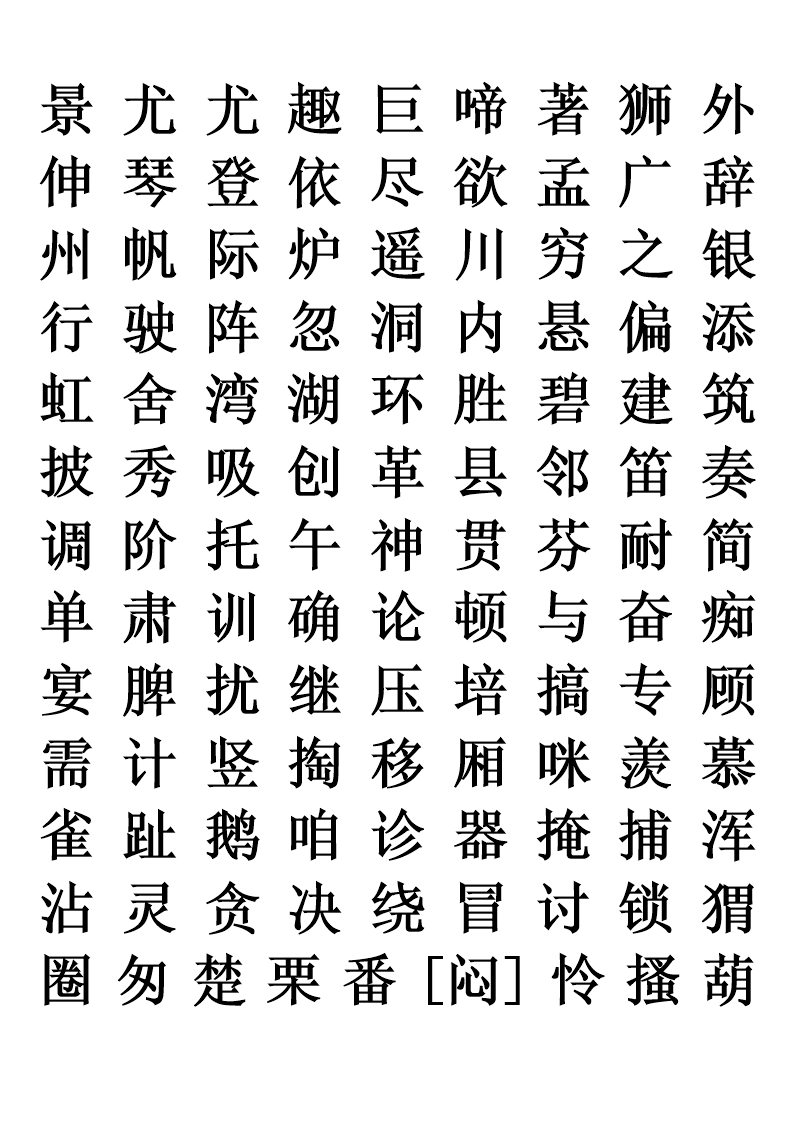 景 尤 尤 趣 巨 啼 著 狮 外
伸 琴 登 依 尽 欲 孟 广 辞
州 帆 际 炉 遥 川 穷 之 银
行 驶 阵 忽 洞 内 悬 偏 添
虹 舍 湾 湖 环 胜 碧 建 筑
披 秀 吸 创 革 县 邻 笛 奏
调 阶 托 午 神 贯 芬 耐 简
单 肃 训 确 论 顿 与 奋 痴
宴 脾 扰 继 压 培 搞 专 顾
需 计 竖 掏 移 厢 咪 羡 慕
雀 趾 鹅 咱 诊 器 掩 捕 浑
沾 灵 贪 决 绕 冒 讨 锁 猬
圈 匆 楚 栗 番 [闷] 怜 搔 葫